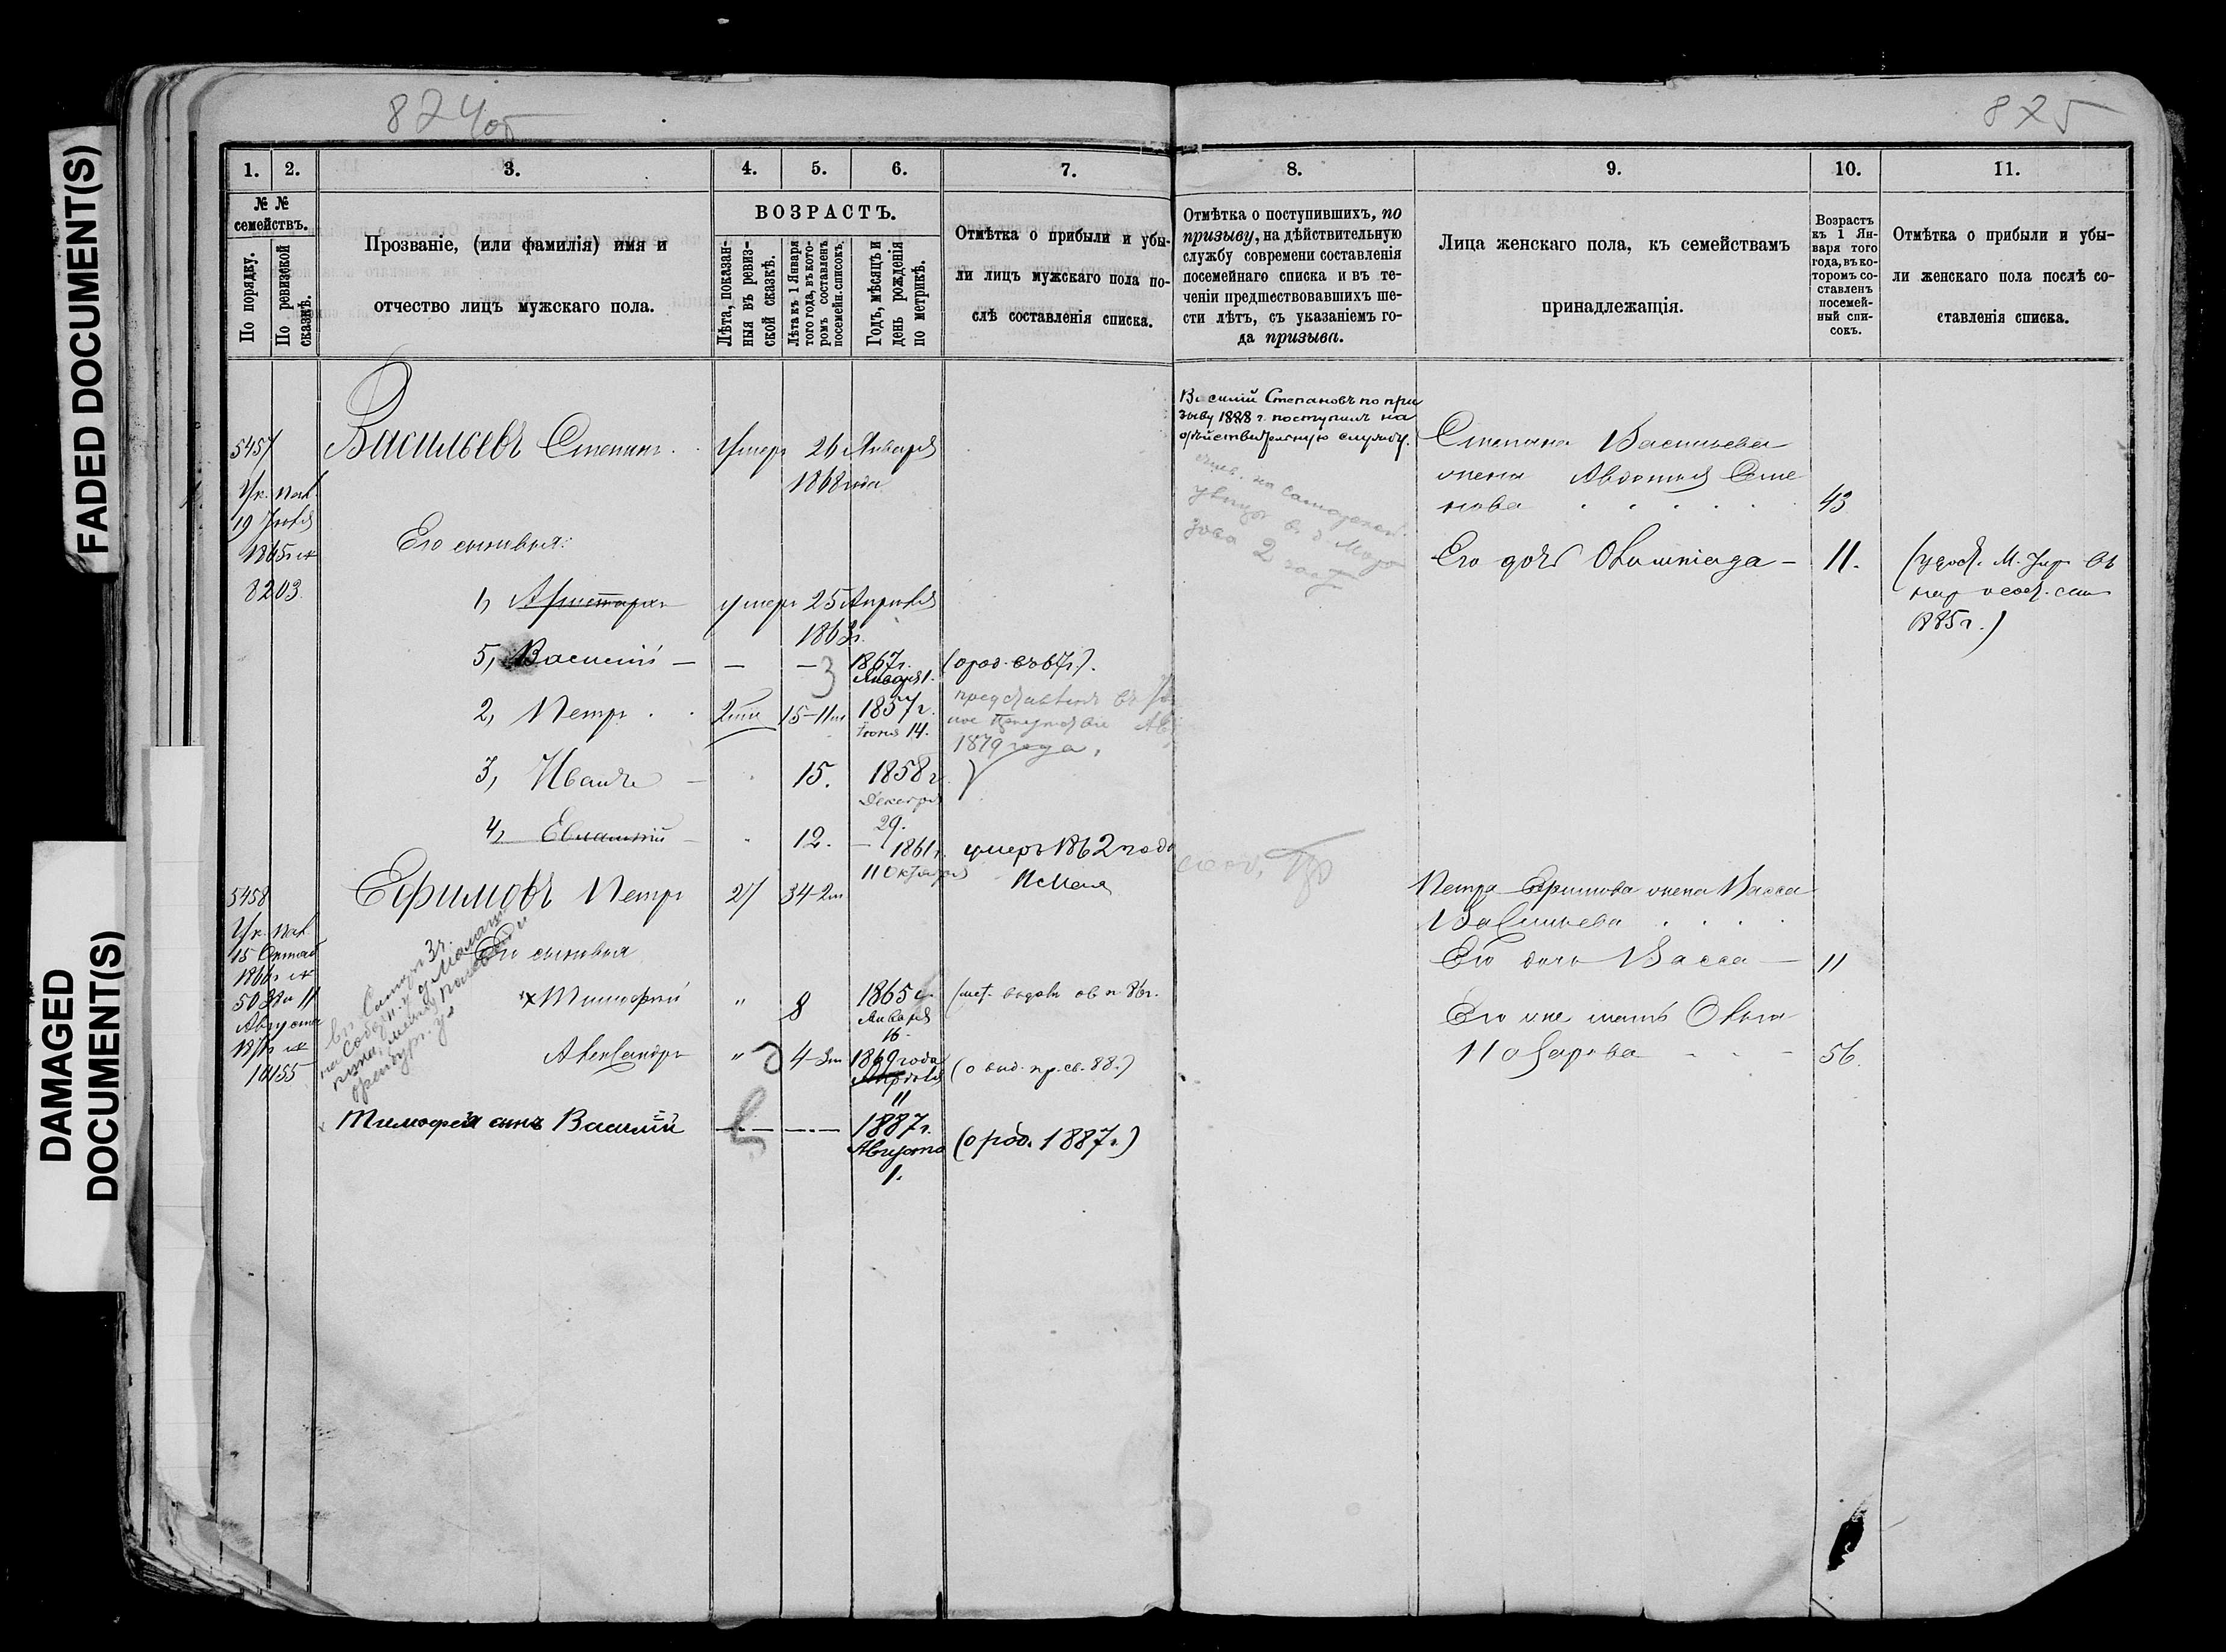 FADED DOCUMENT(S)
DAMAGED
DOCUMENT(S)
824об
825
1.
2.
3.
4.
5.
6.
7.
8.
9.
10.
11.
№ №
семействъ.
По порядку.
По ревизской
сказкѣ.
Прозваніе, (или фамилія) имя и
отчество лицъ мужскаго пола.
ВОЗРАСТЪ.
Лѣта, показан-
ныя въ ревиз-
ской сказкѣ.
Лѣта къ 1 Января
того года, въ кото-
ромъ составленъ
посемейн. списокъ.
Годъ, мѣсяцъ и
день рожденія
по метрикѣ.
Отмѣтка о прибыли и убы-
ли лицъ мужскаго пола по-
слѣ составленія списка.
Отмѣтка о поступившихъ, по
призыву, на дѣйствительную
службу современи составленія
посемейнаго списка и въ те-
ченіи предшествовавшихъ ше-
сти лѣтъ, съ указаніемъ го-
да призыва.
Лица женскаго пола, къ семействамъ
принадлежащія.
Возрастъ
къ 1 Ян-
варя того
года, въ ко-
торомъ со-
ставленъ
посемей-
ный спи-
сокъ.
Отмѣтка о прибыли и убы-
ли женскаго пола послѣ со-
ставленія списка.
5457
Ук. Пал.
19 Іюля
1865 г. №
8203
Васильевъ Степанъ
Умеръ 26 Января
1868 года
Василій Степановъ по при
зыву 1888 г. поступилъ на
дѣйствительную службу.
Степана Васильева
жена Авдотья Семе
нова 43
Его дочь Олимпіада 11.
1885 г.)
Его сыновья:
1, Аристархъ умеръ 25 Апрѣля
1863 г.
5, Василій — — — 3 1867 г.
Января 1.
(о род. въ 67 г.).
2, Петръ 15-11 м 1857 г.
Іюня 14.
1879 года.
3, Иванъ — 15. 1858 г.
Декабря
29.
4, Евлампій 12. — 1861 г.
11 Октября
умеръ 1862 года
5458
Ук. Пал.
15 Сентяб
1866 г. №
11
Августа
1871 г. №
10155
Ефимовъ Петръ 27 34-2 м
Петра Ефимова жена Васса
Васильева
Его сыновья
Его дочь Васса — 11
Тимофей " 8 1865 г.
Января
16
Его же мать Ольга
Назарова 56
Александръ " 4-8 м 1869 года
Апрѣля
11
(о выд. пр. св. 88.)
Тимофея сынъ Василій — — 1887 г.
Августа
1.
(о род. 1887 г.)